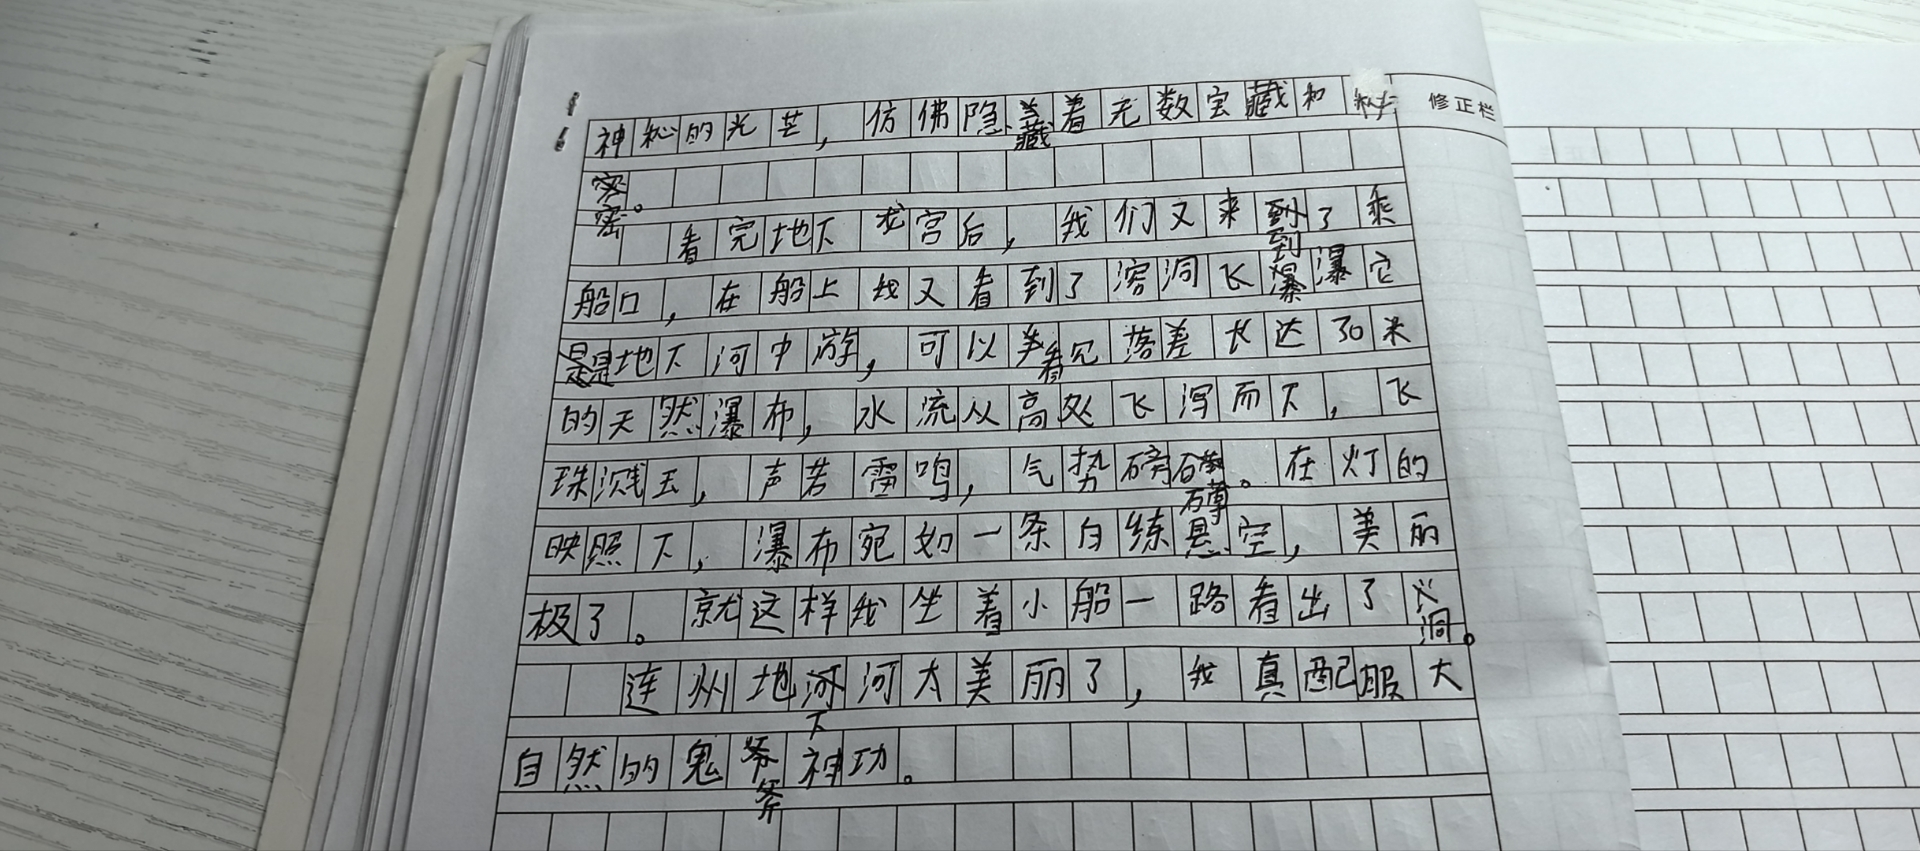 修正栏
神秘的光芒，仿佛隐藏着无数宝藏和秘
密。
看完地下龙宫后，我们又来到了乘
船口，在船上我又看到了溶洞飞瀑瀑它
是地下河中游，可以看见落差长达30米
的天然瀑布，水流从高处飞泻而下，飞
珠溅玉，声若雷鸣，气势磅礴。在灯的
映照下，瀑布宛如一条白练悬空，美丽
极了。就这样我坐着小船一路看出了洞。
连州地下河太美丽了，我真配服大
自然的鬼斧神功。